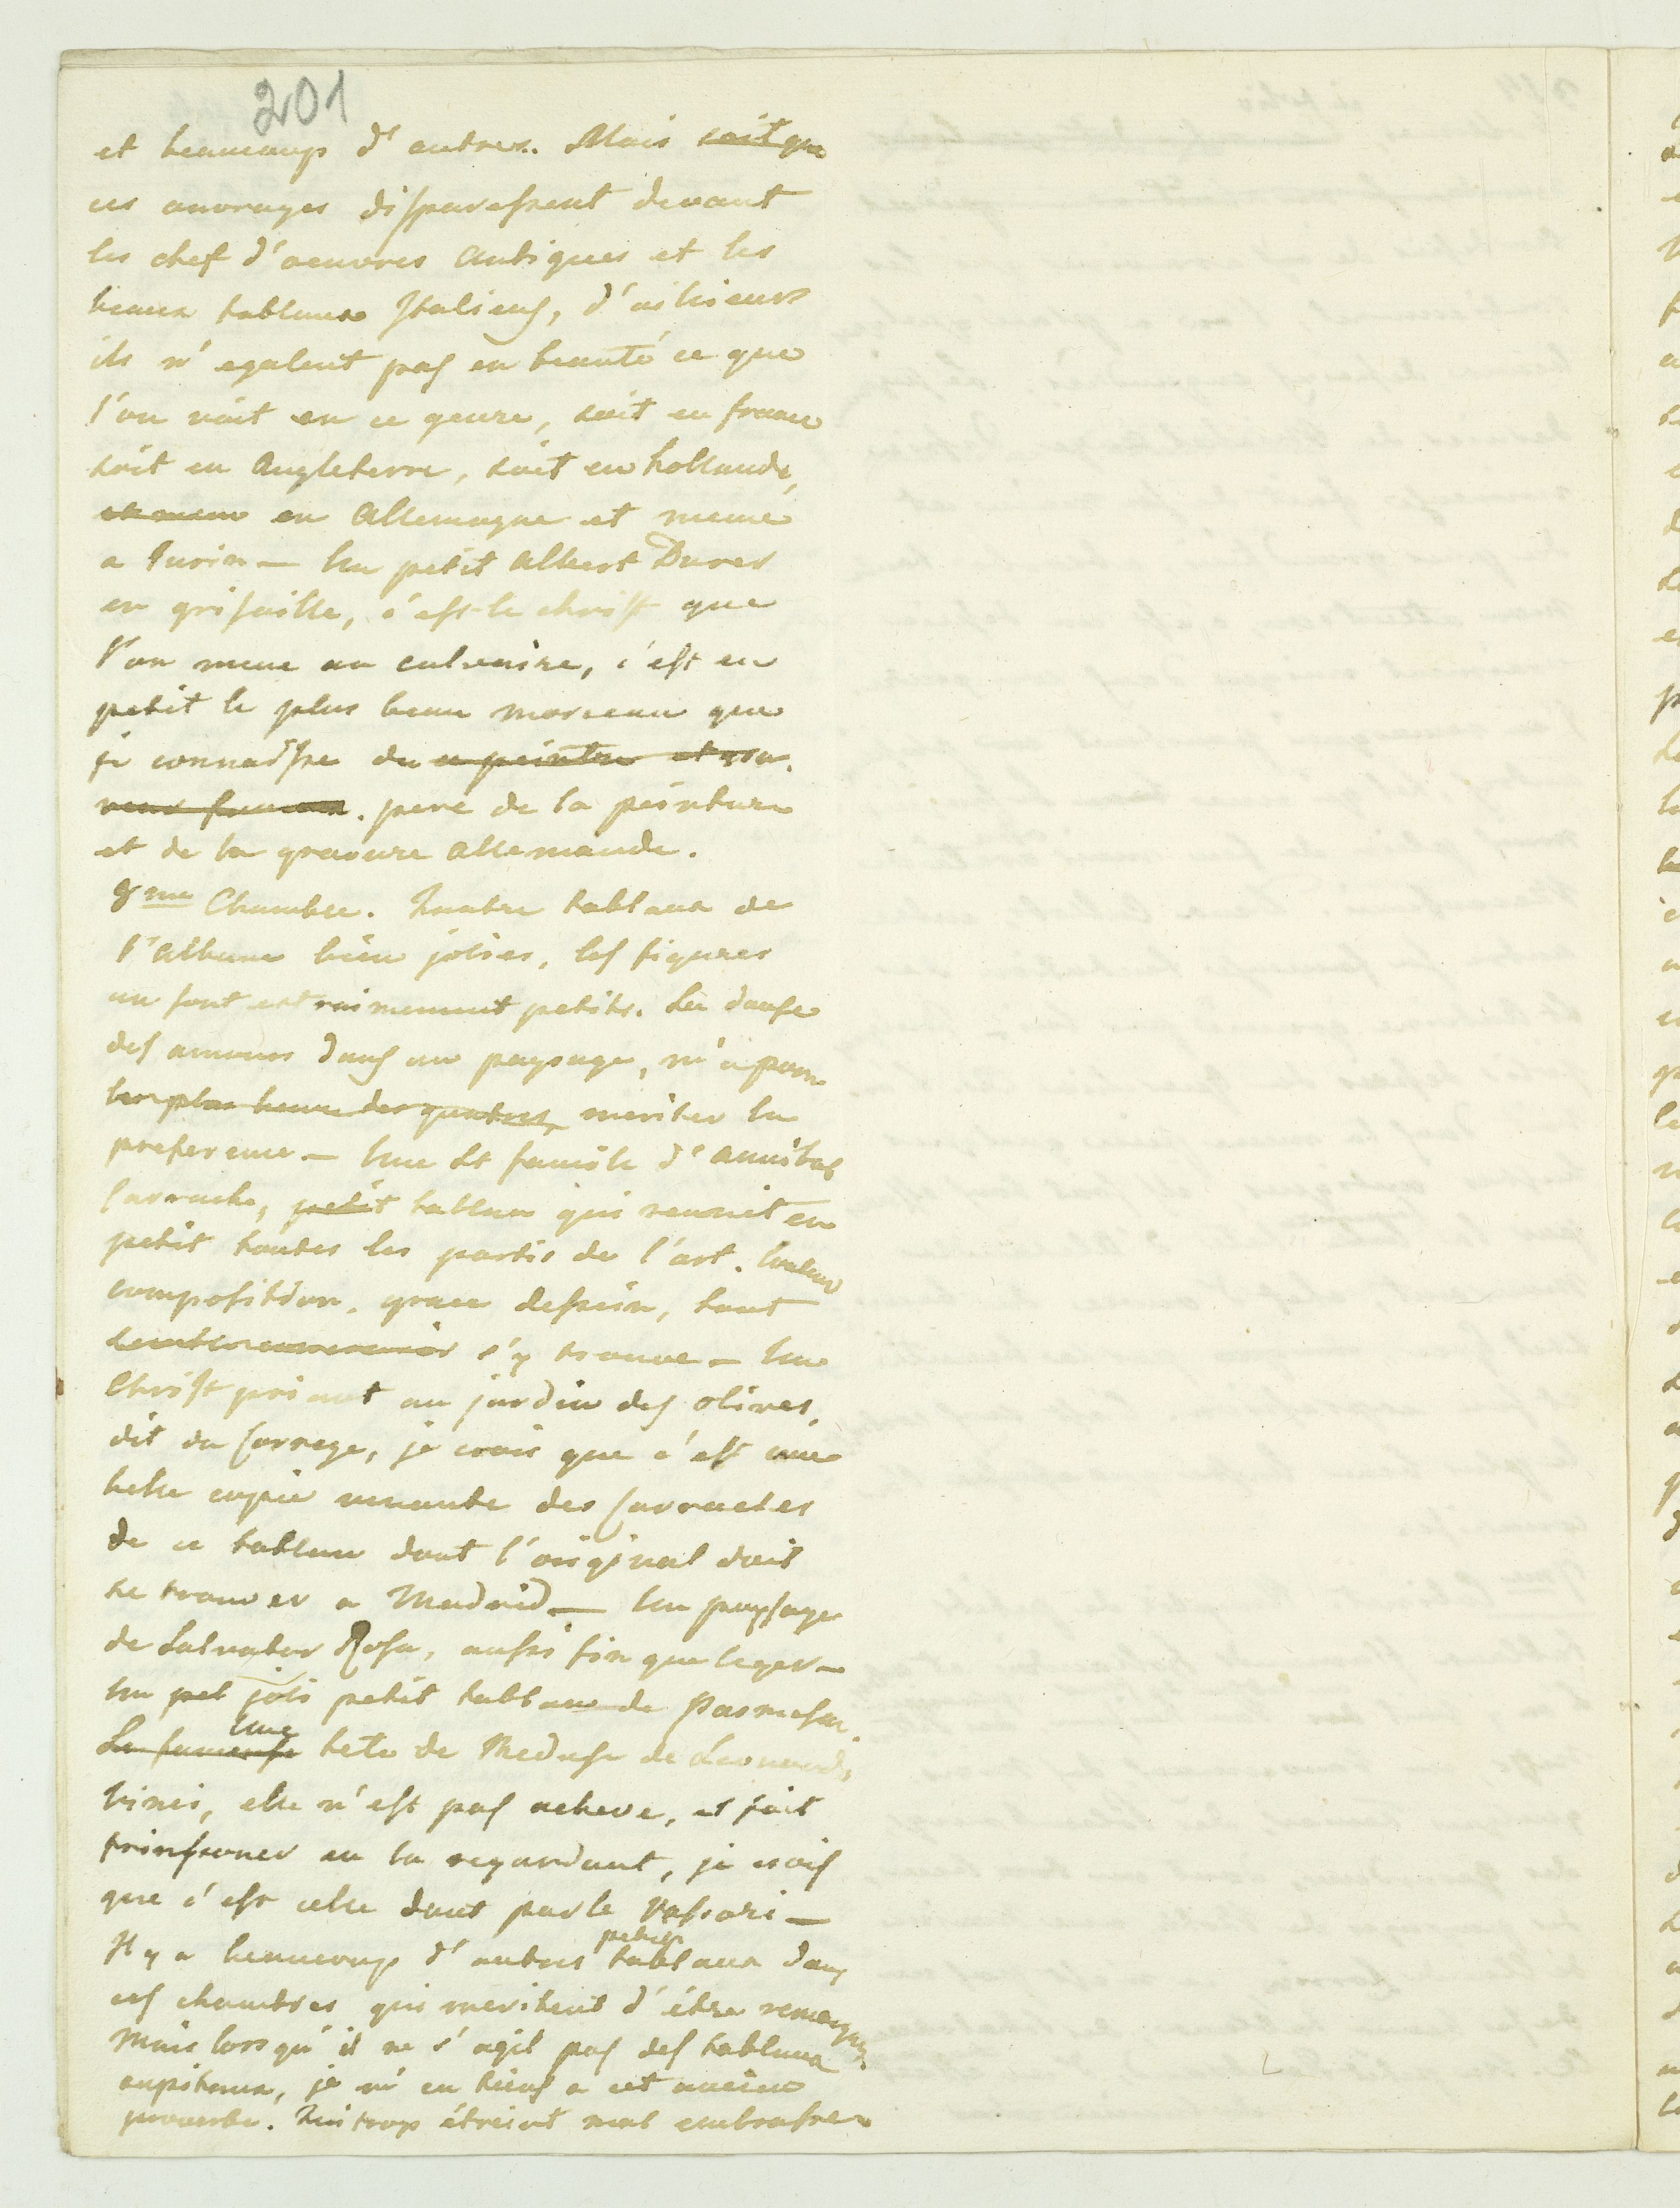 201
et beaucoup d'autres. Mais soit que
ces ouvrages disparessent devant
les chef d'oeuvres antiques et les
beaux tableaux Italiens, d'ailieurs
ils n'egalent pas en beauté ce que
l'on voit en ce genre, soit en france
soit en Angleterre, soit en hollande,
et meme en Allemagne et meme
a Turin — Un petit Albert Durer
en grisaille, c'est le christ que
l'on mene au calvaire, c'est en
petit le plus beau morceau que
je connaisse du ce peintre et gra-
veur pere de la peinture
et de la gravure allemande.
8me Chambre. Quatre tableaux de
l'Albane bien jolies, les figures
en sont extraimement petites. La danse
des amours dans un paysage, m'a paru
le plus beau des quatres, meriter la
preference — Une St famile d'Annibal
Carrache, petit tableau qui reunit en
petit toutes les partie de l'art. Couleur
composition, grace dessein, tout
s'y trouve — Un
Christ priant au jardin des olives,
dit du Correge, je crois que c'est une
belle copie venante des Carraches
de ce tableau dont l'original doit
se trouver a Madrid — Un paysage
de Salvator Rosa, aussi fin que leger —
Un pet joli petit tableau de Parmesan.
Une
La fameuse tete de Meduse de Leonard
Vinci, elle n'est pas acheve, et fait
frinsoner en la regardant, je crois
que c'est celle dont parle Vassari —
petits
Il y a beaucoup d'autres tableaux dans
ces chambres qui meritent d'être remarqués
Mais lorsqu'il ne s'agit pas des tableaux
capitaux, je m'en tiens a cet ancien
proverbe. Qui trop étreint mal embrasse